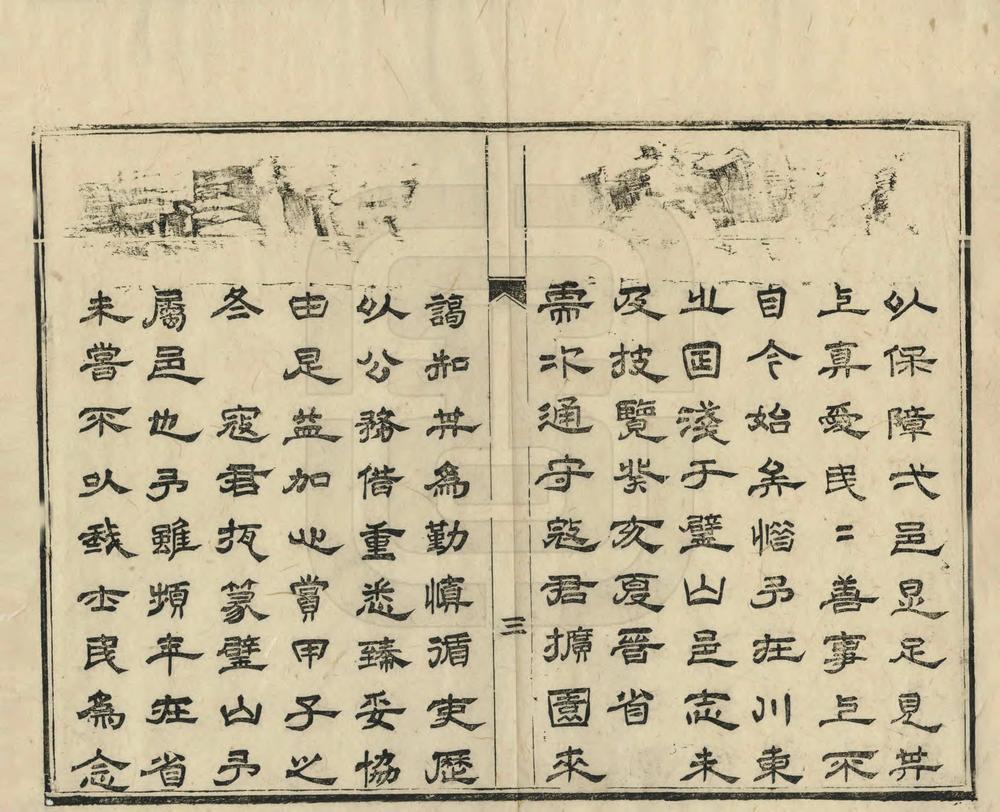 以保障弌邑是足見其
上真愛民二善事上不
自今始矣惜予在川東
之日淺于璧山邑志未
及披覽癸亥夏晉省
需次通守寇君擴園來
三
謁知其為勤慎循吏歷
以公務借重悉臻妥協
由是益加心賞甲子之
冬 寇君篆璧山予
屬邑也予雖頻年在省
未嘗不以我士民為念